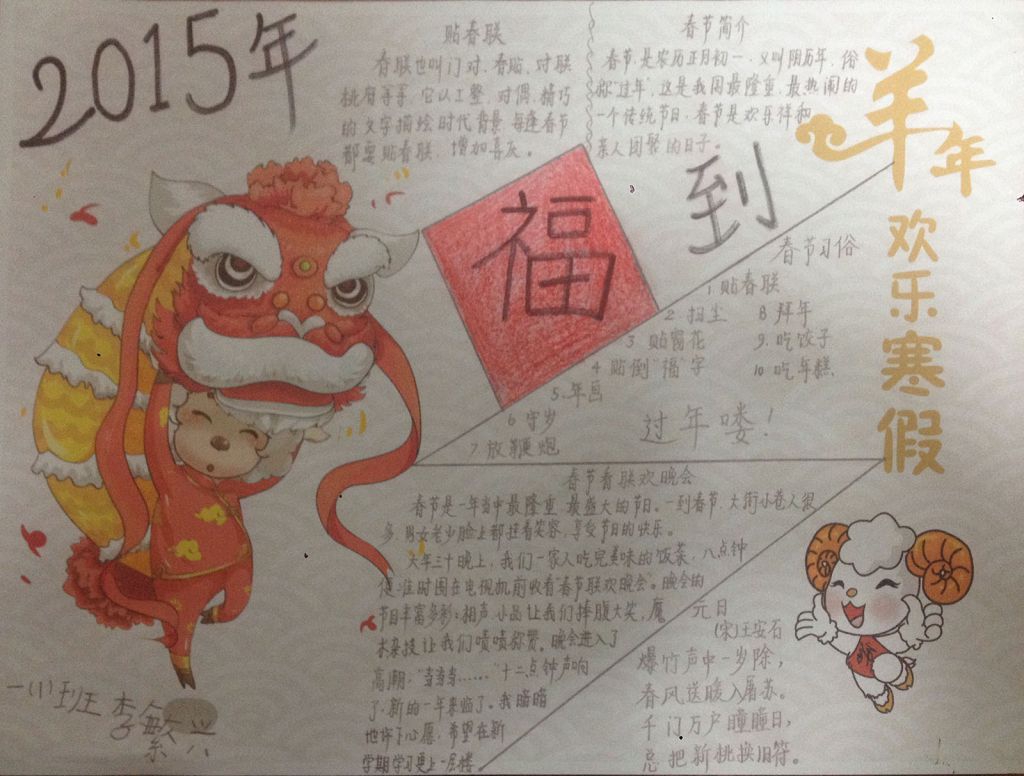 2015年
贴春联
春联也叫门对、春贴、对联
桃符等等,它以工整、对偶、精巧
的文字描绘时代背景,每逢春节
都要贴春联,增加喜庆。
春节简介
春节是农历正月初一,又叫阴历年,俗
称“过年”,这是我国最隆重、最热闹的
一个传统节日。春节是欢乐祥和
亲人团聚的日子。
羊年
欢乐寒假
福
到
春节习俗
1 贴春联
2. 扫尘
3 贴窗花
4 贴倒“福”字
5. 年画
6 守岁
7 放鞭炮
8 拜年
9. 吃饺子
10 吃年糕.
过年喽!
春节看联欢晚会
春节是一年当中最隆重、最盛大的节日。一到春节,大街小巷人很
多,男女老少脸上都挂着笑容,享受节日的快乐。
大年三十晚上,我们一家人吃完美味的饭菜,八点钟
便准时围在电视机前收看春节联欢晚会。晚会的
节目丰富多彩:相声、小品让我们捧腹大笑,魔
术杂技让我们啧啧称赞。晚会进入了
高潮:“当当当……”十二点钟声响
了,新的一年来临了。我暗暗
地许下心愿,希望在新
学期学习更上一层楼。
元日
(宋)王安石
爆竹声中一岁除,
春风送暖入屠苏。
千门万户瞳瞳日,
总把新桃换旧符。
一(1)班 李繁兴